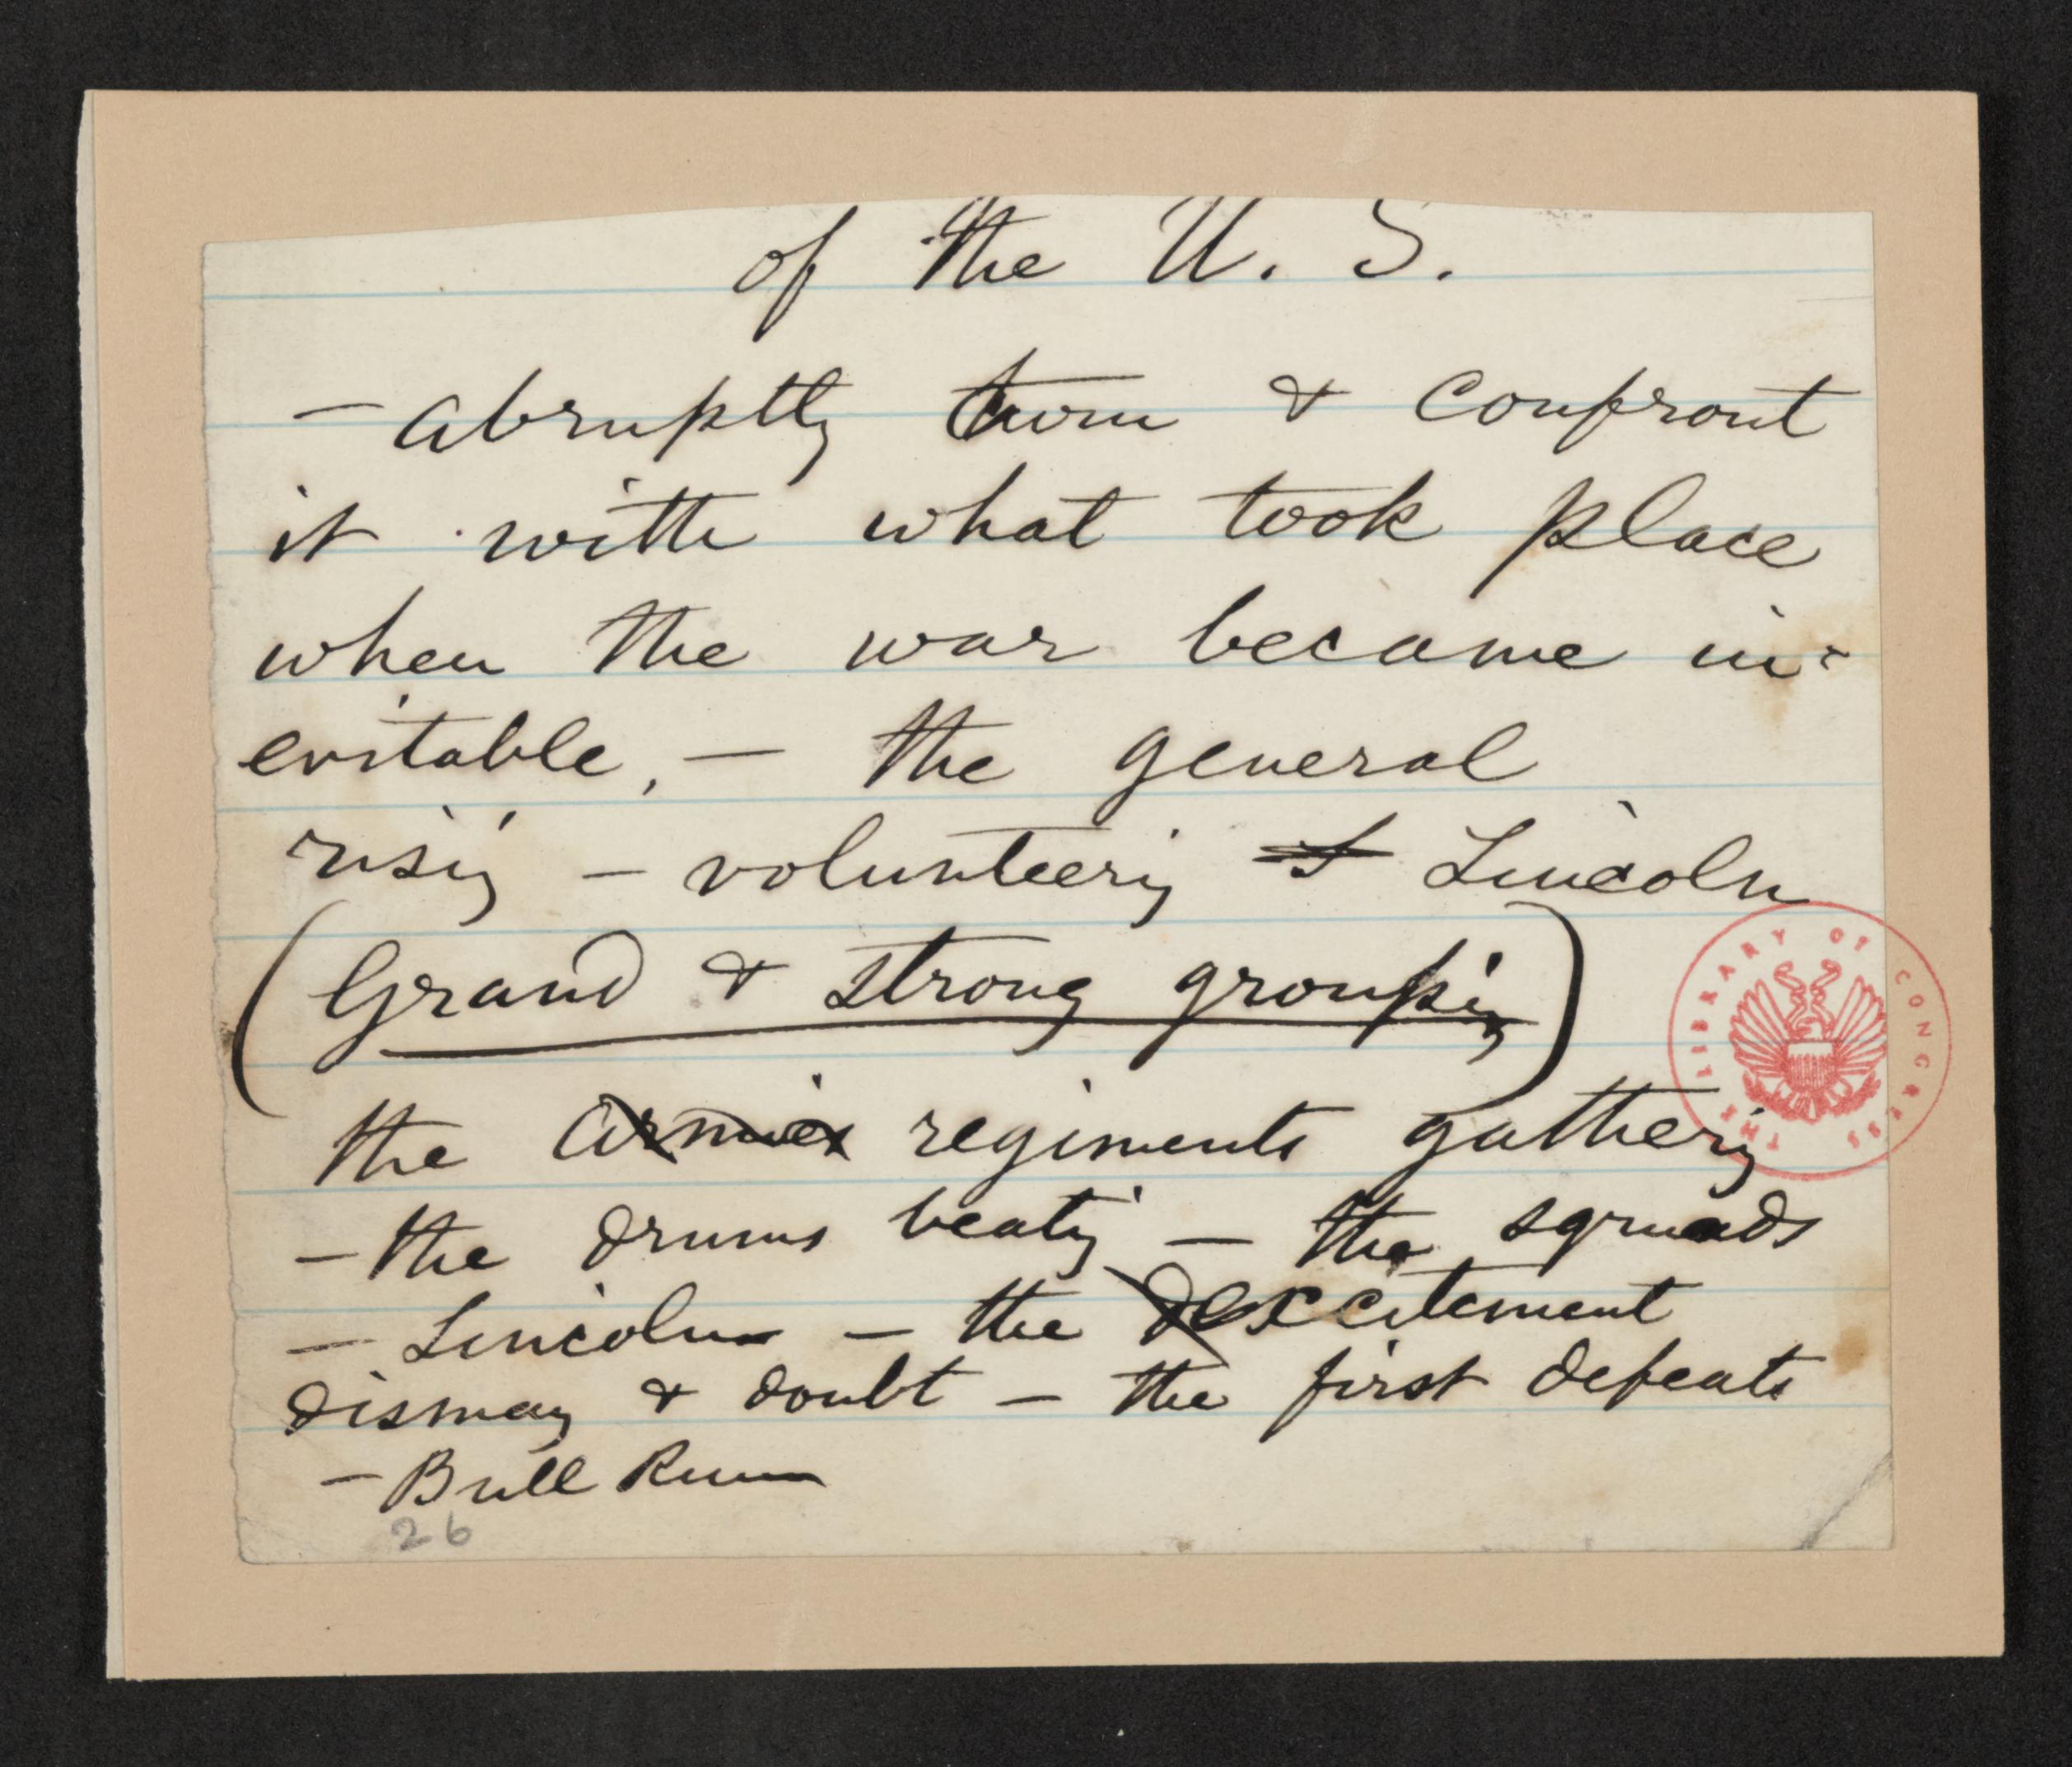 of the U. S.
— abruptly turn & confront
it with what took place
when the war became in-
evitable, — the general
rising — volunteering Lincoln
(Grand & strong grouping)
the armies regiments gathering
— the drums beating — the squads
— Lincoln — the excitement
dismay & doubt — the first defeats
— Bull Run
26
THE LIBRARY OF CONGRESS